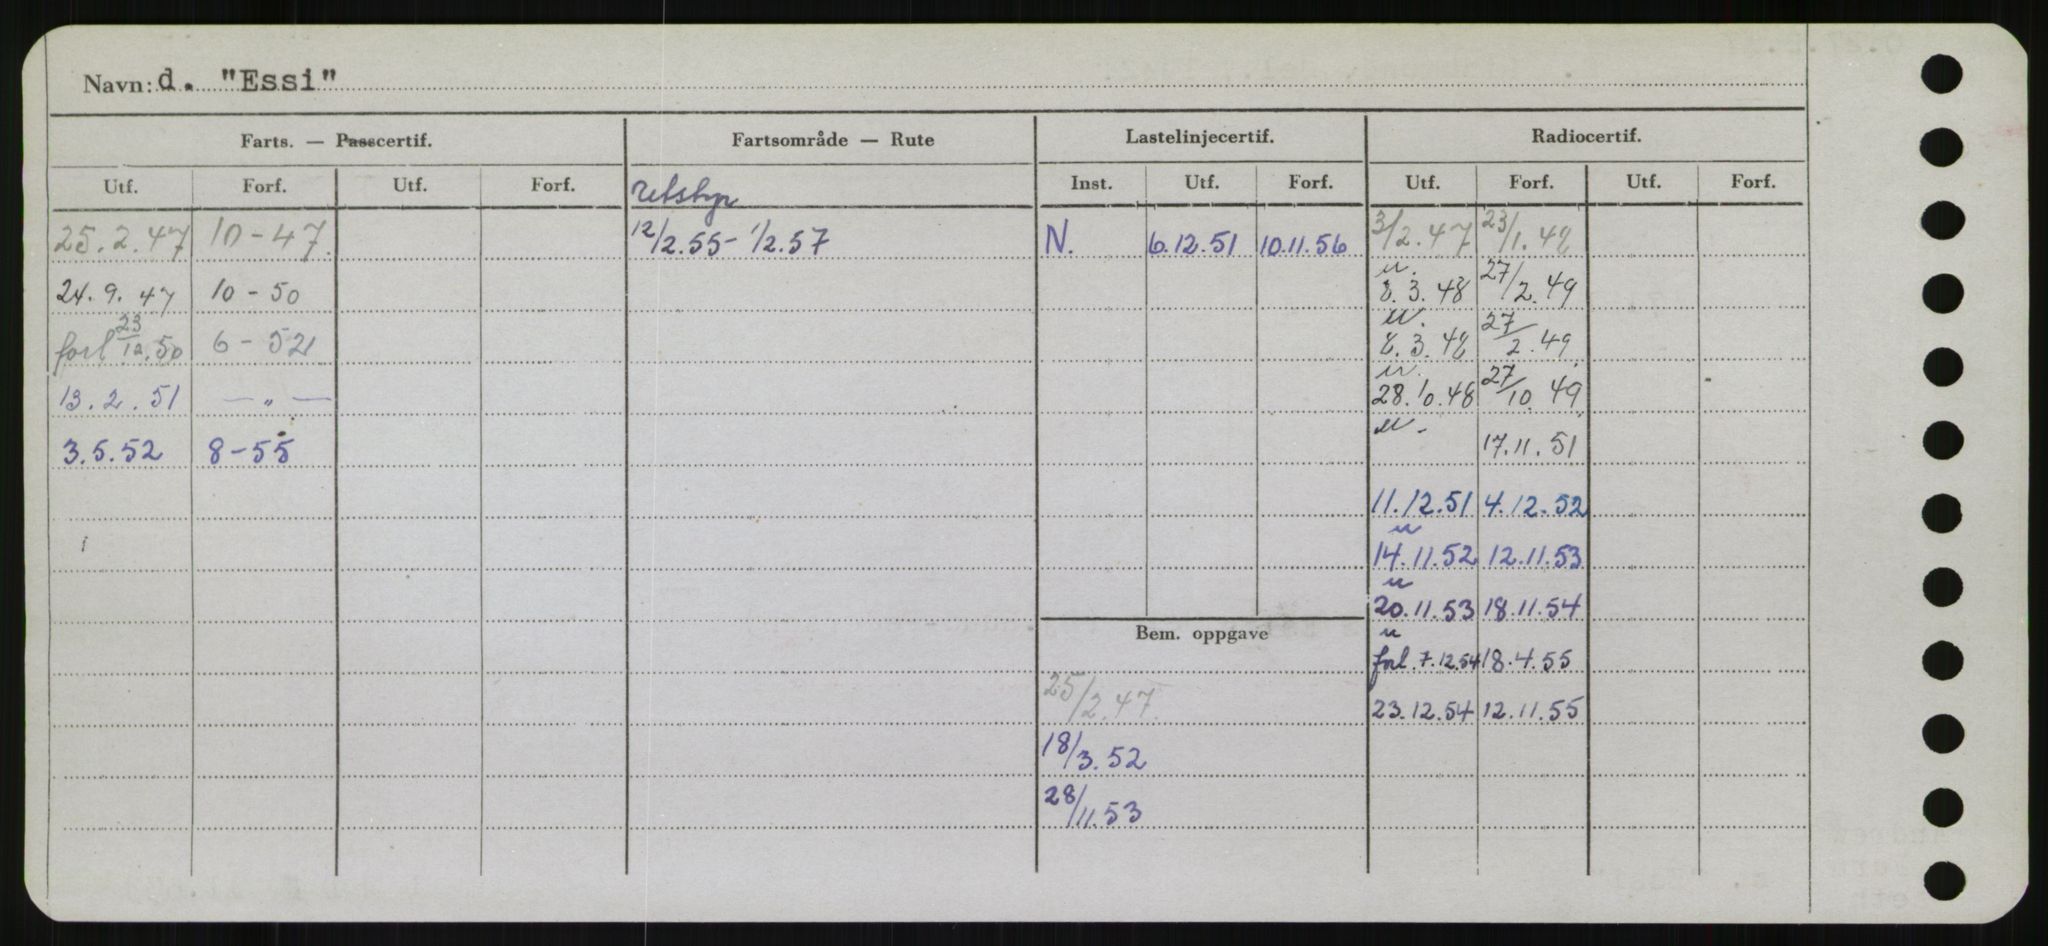 Navn: d. "Essi"
Farts. — Passcertif. Fartsområde — Rute Lastelinjecertif. Radiocertif.
Utf. Forf. Utf. Forf. Inst. Utf. Forf. Utf. Forf. Utf. Forf.
25.2.47 10-47. 12/2.55-1/2.57 N. 6.12.51 10.11.56 3/2.47 23/1.48
24.9.47 10-50 8.3.48 27/2.49
forl 23/12.50 6-52 8.3.48 27/2.49
13.2.51 —"— 28.10.48 27/10.49
3.5.52 8-55 17.11.51
11.12.51 4.12.52
14.11.52 12.11.53
20.11.53 18.11.54
Bem. oppgave
forl. 7.12.54 18.4.55
25/2.47 23.12.54 12.11.55
18/3.52
28/11.53